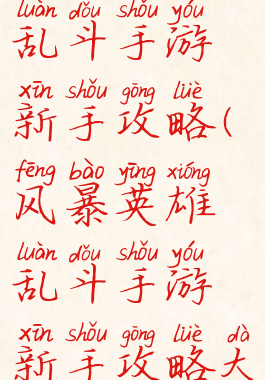 luàn dǒu shǒu yóu
乱斗手游
xīn shǒu gōng lüè
新手攻略(
fēng bào yīng xióng
风暴英雄
luàn dǒu shǒu yóu
乱斗手游
xīn shǒu gōng lüè dà
新手攻略大